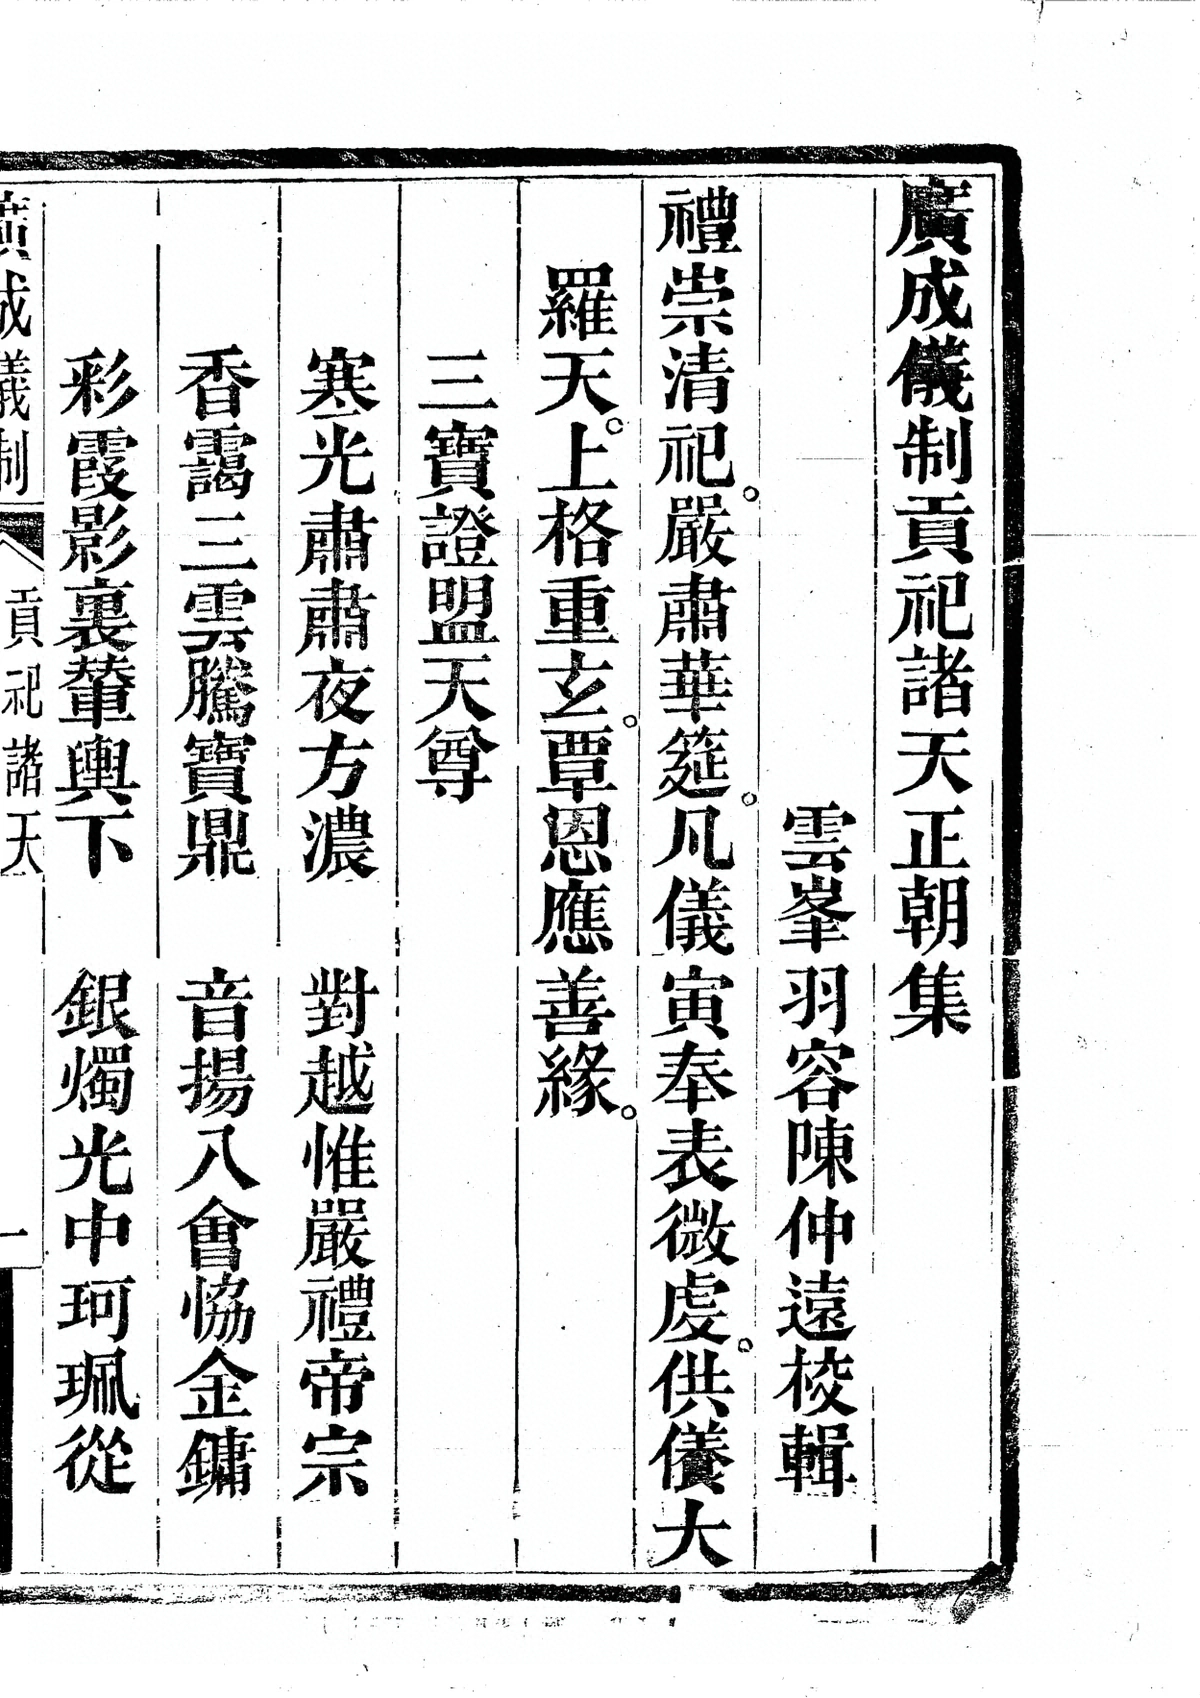 廣成儀制貢祀諸天正朝集
雲峯羽容陳仲遠校輯
禮崇清祀。嚴肅華筵。凡儀寅奉表微虔。供儀大
羅天。上格重玄。覃恩應善緣。
三寶證盟天尊
寒光肅肅夜方濃　對越惟嚴禮帝宗
香靄三雲騰寶鼎　音揚八會恊金鏞
彩霞影裏輦輿下　銀燭光中珂珮從
廣成儀制　貢祀諸天　一